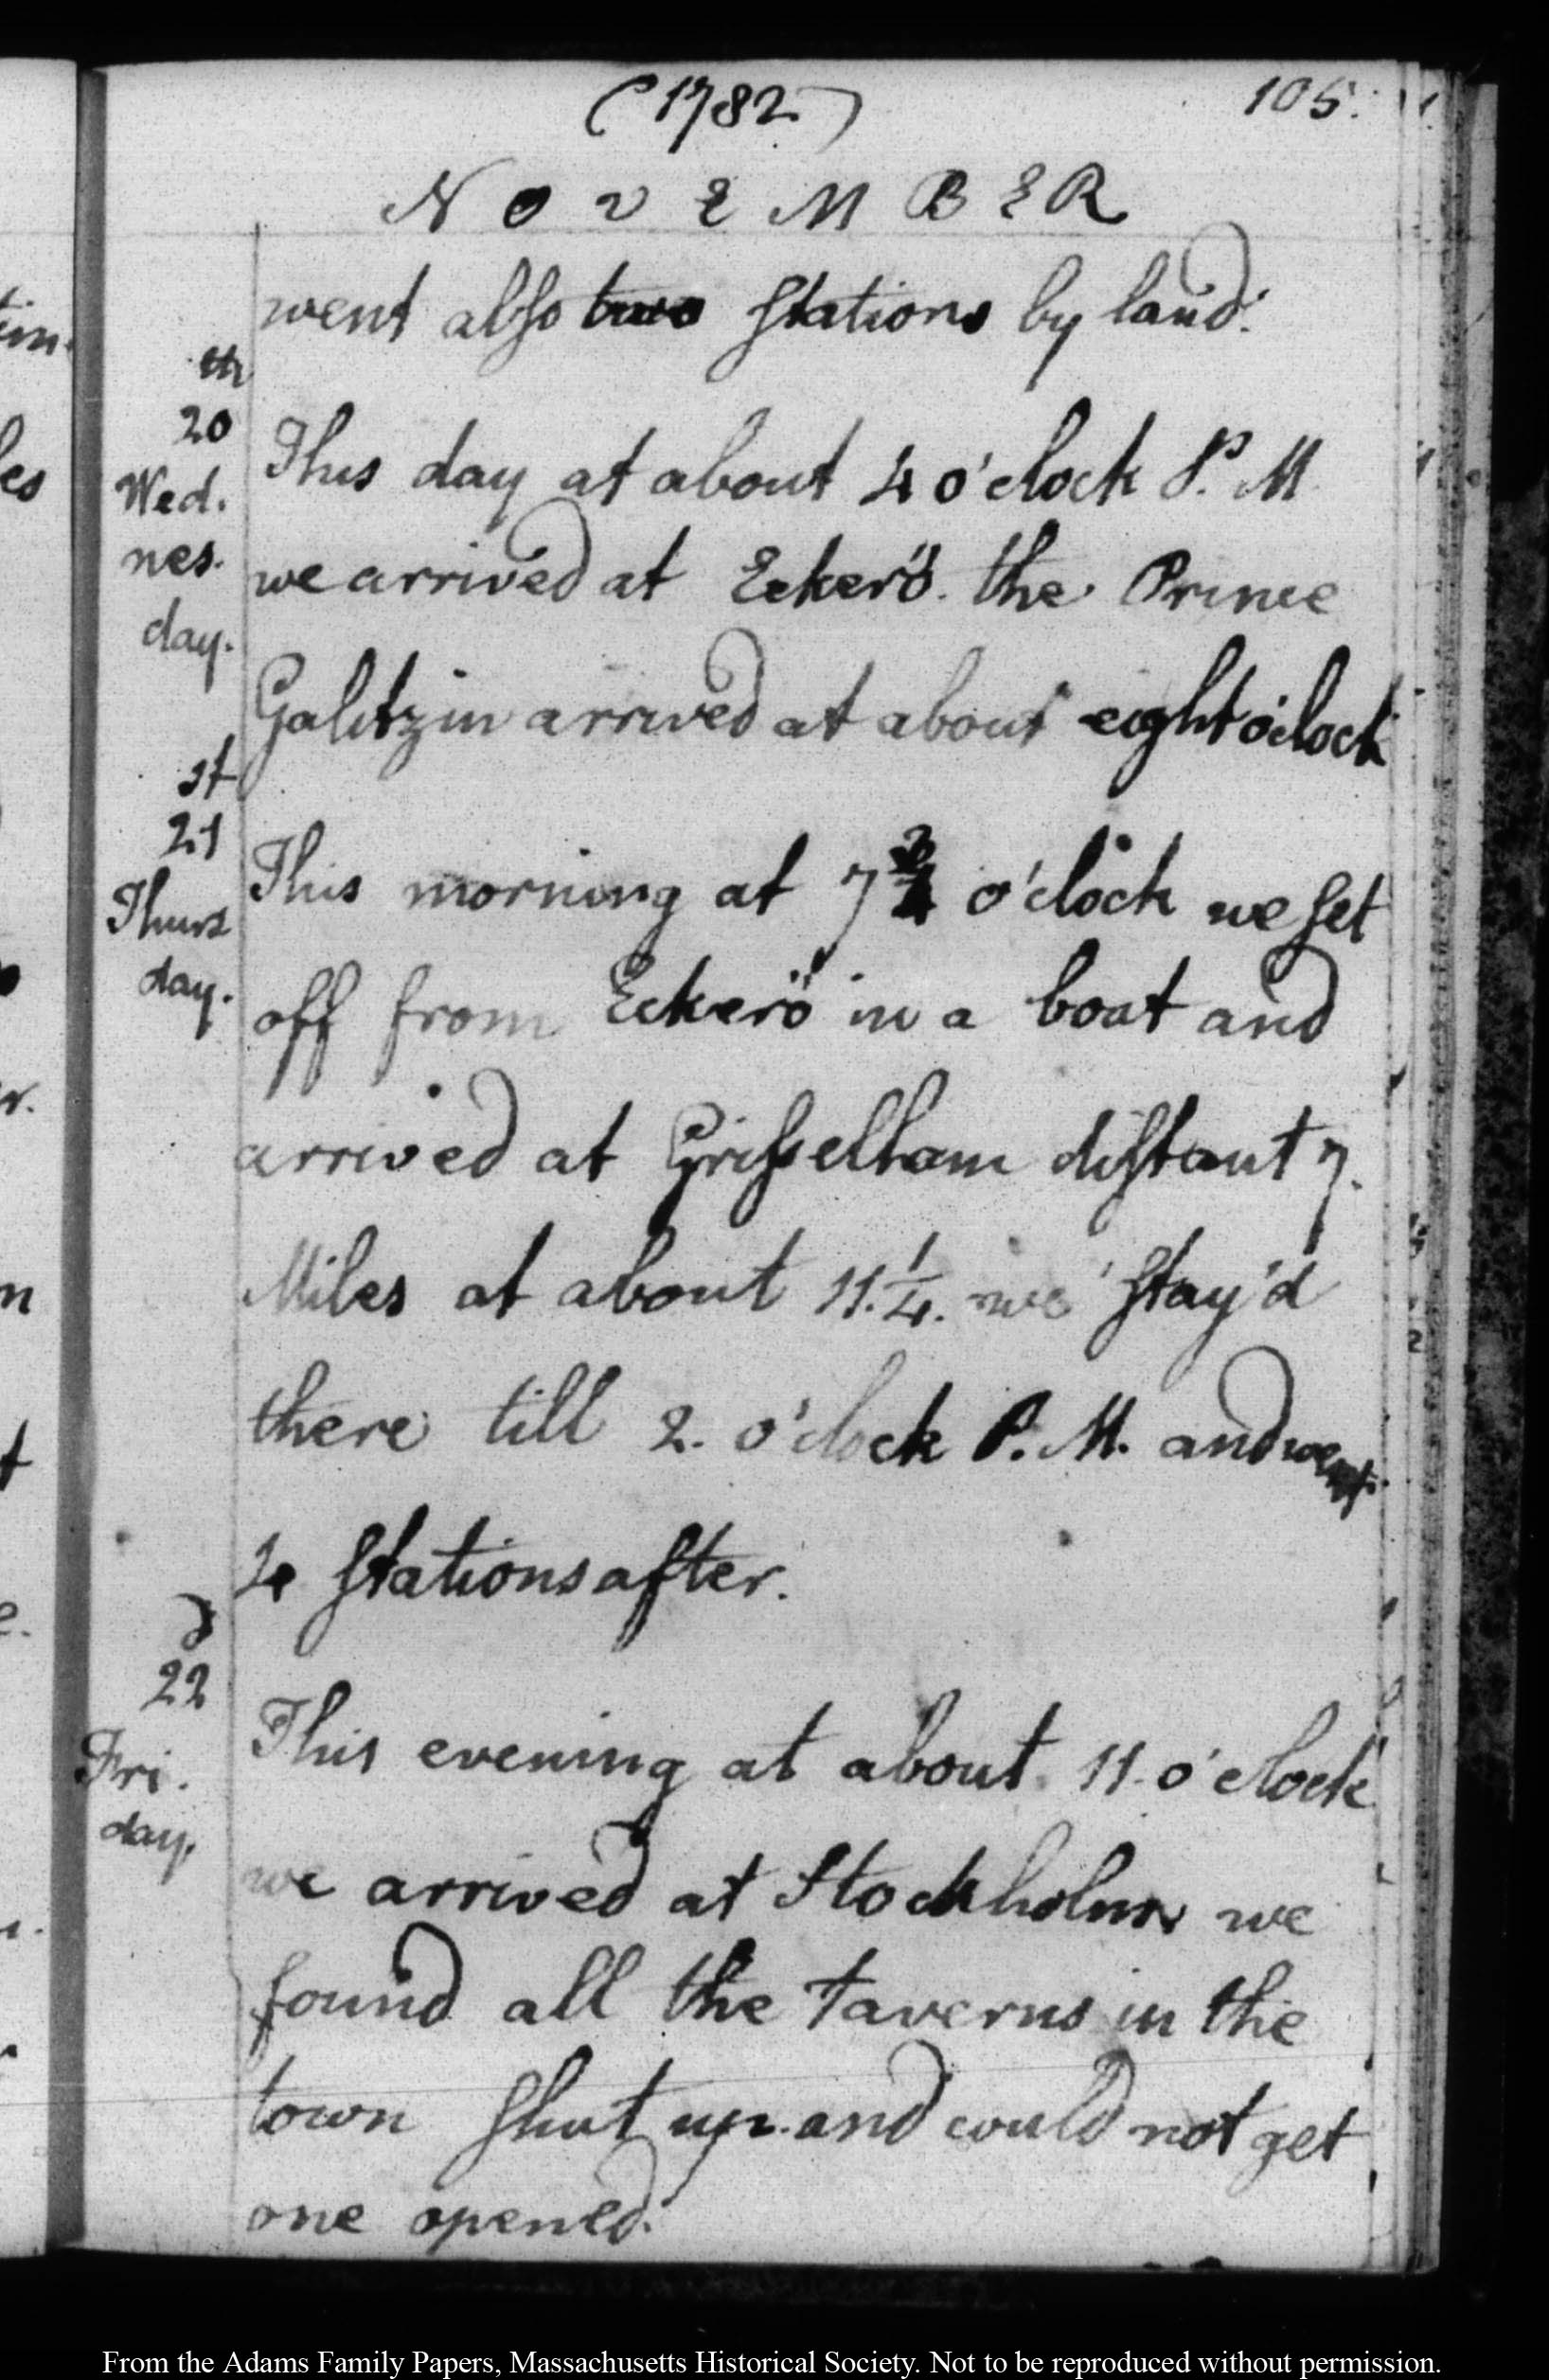 (1782) 105.
NOVEMBER
went also two stations by land.
th
20
Wed.
nes.
day.
This day at about 4 o'clock P. M
we arrived at Eckerö. the Prince
Galitzin arrived at about eight o'clock
st
21
Thurs
day.
This morning at 7 3/4 o'clock we set
off from Eckerö in a boat and
arrived at Grisselham distant 7.
Miles at about 11. 1/4. we stay'd
there till 2. o'clock P. M. and went
stations after.
d
22
Fri.
day.
This evening at about 11. o'clock
we arrived at Stockholm we
found all the taverns in the
town shut up. and could not get
one opened.
From the Adams Family Papers, Massachusetts Historical Society. Not to be reproduced without permission.